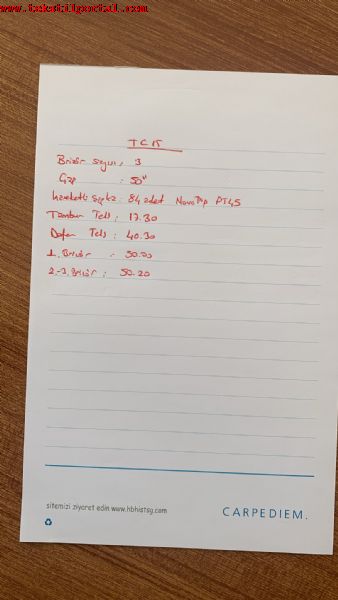 www.tekstilportal.com
TC 15
Brizör sayısı : 3
: 50"
hareketli şapka : 84 adet Novo Top PT45
Tambur Teli : 17.30
Tel : 40.30
1. Brizör : 50.20
2-3. Brizör : 50.20
sitemizi ziyaret edin www.hbhistsg.com
CARPEDIEM.